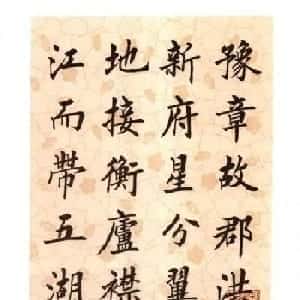 豫章故郡洪
新府星分翼
地接衡廬襟
江而帶五湖